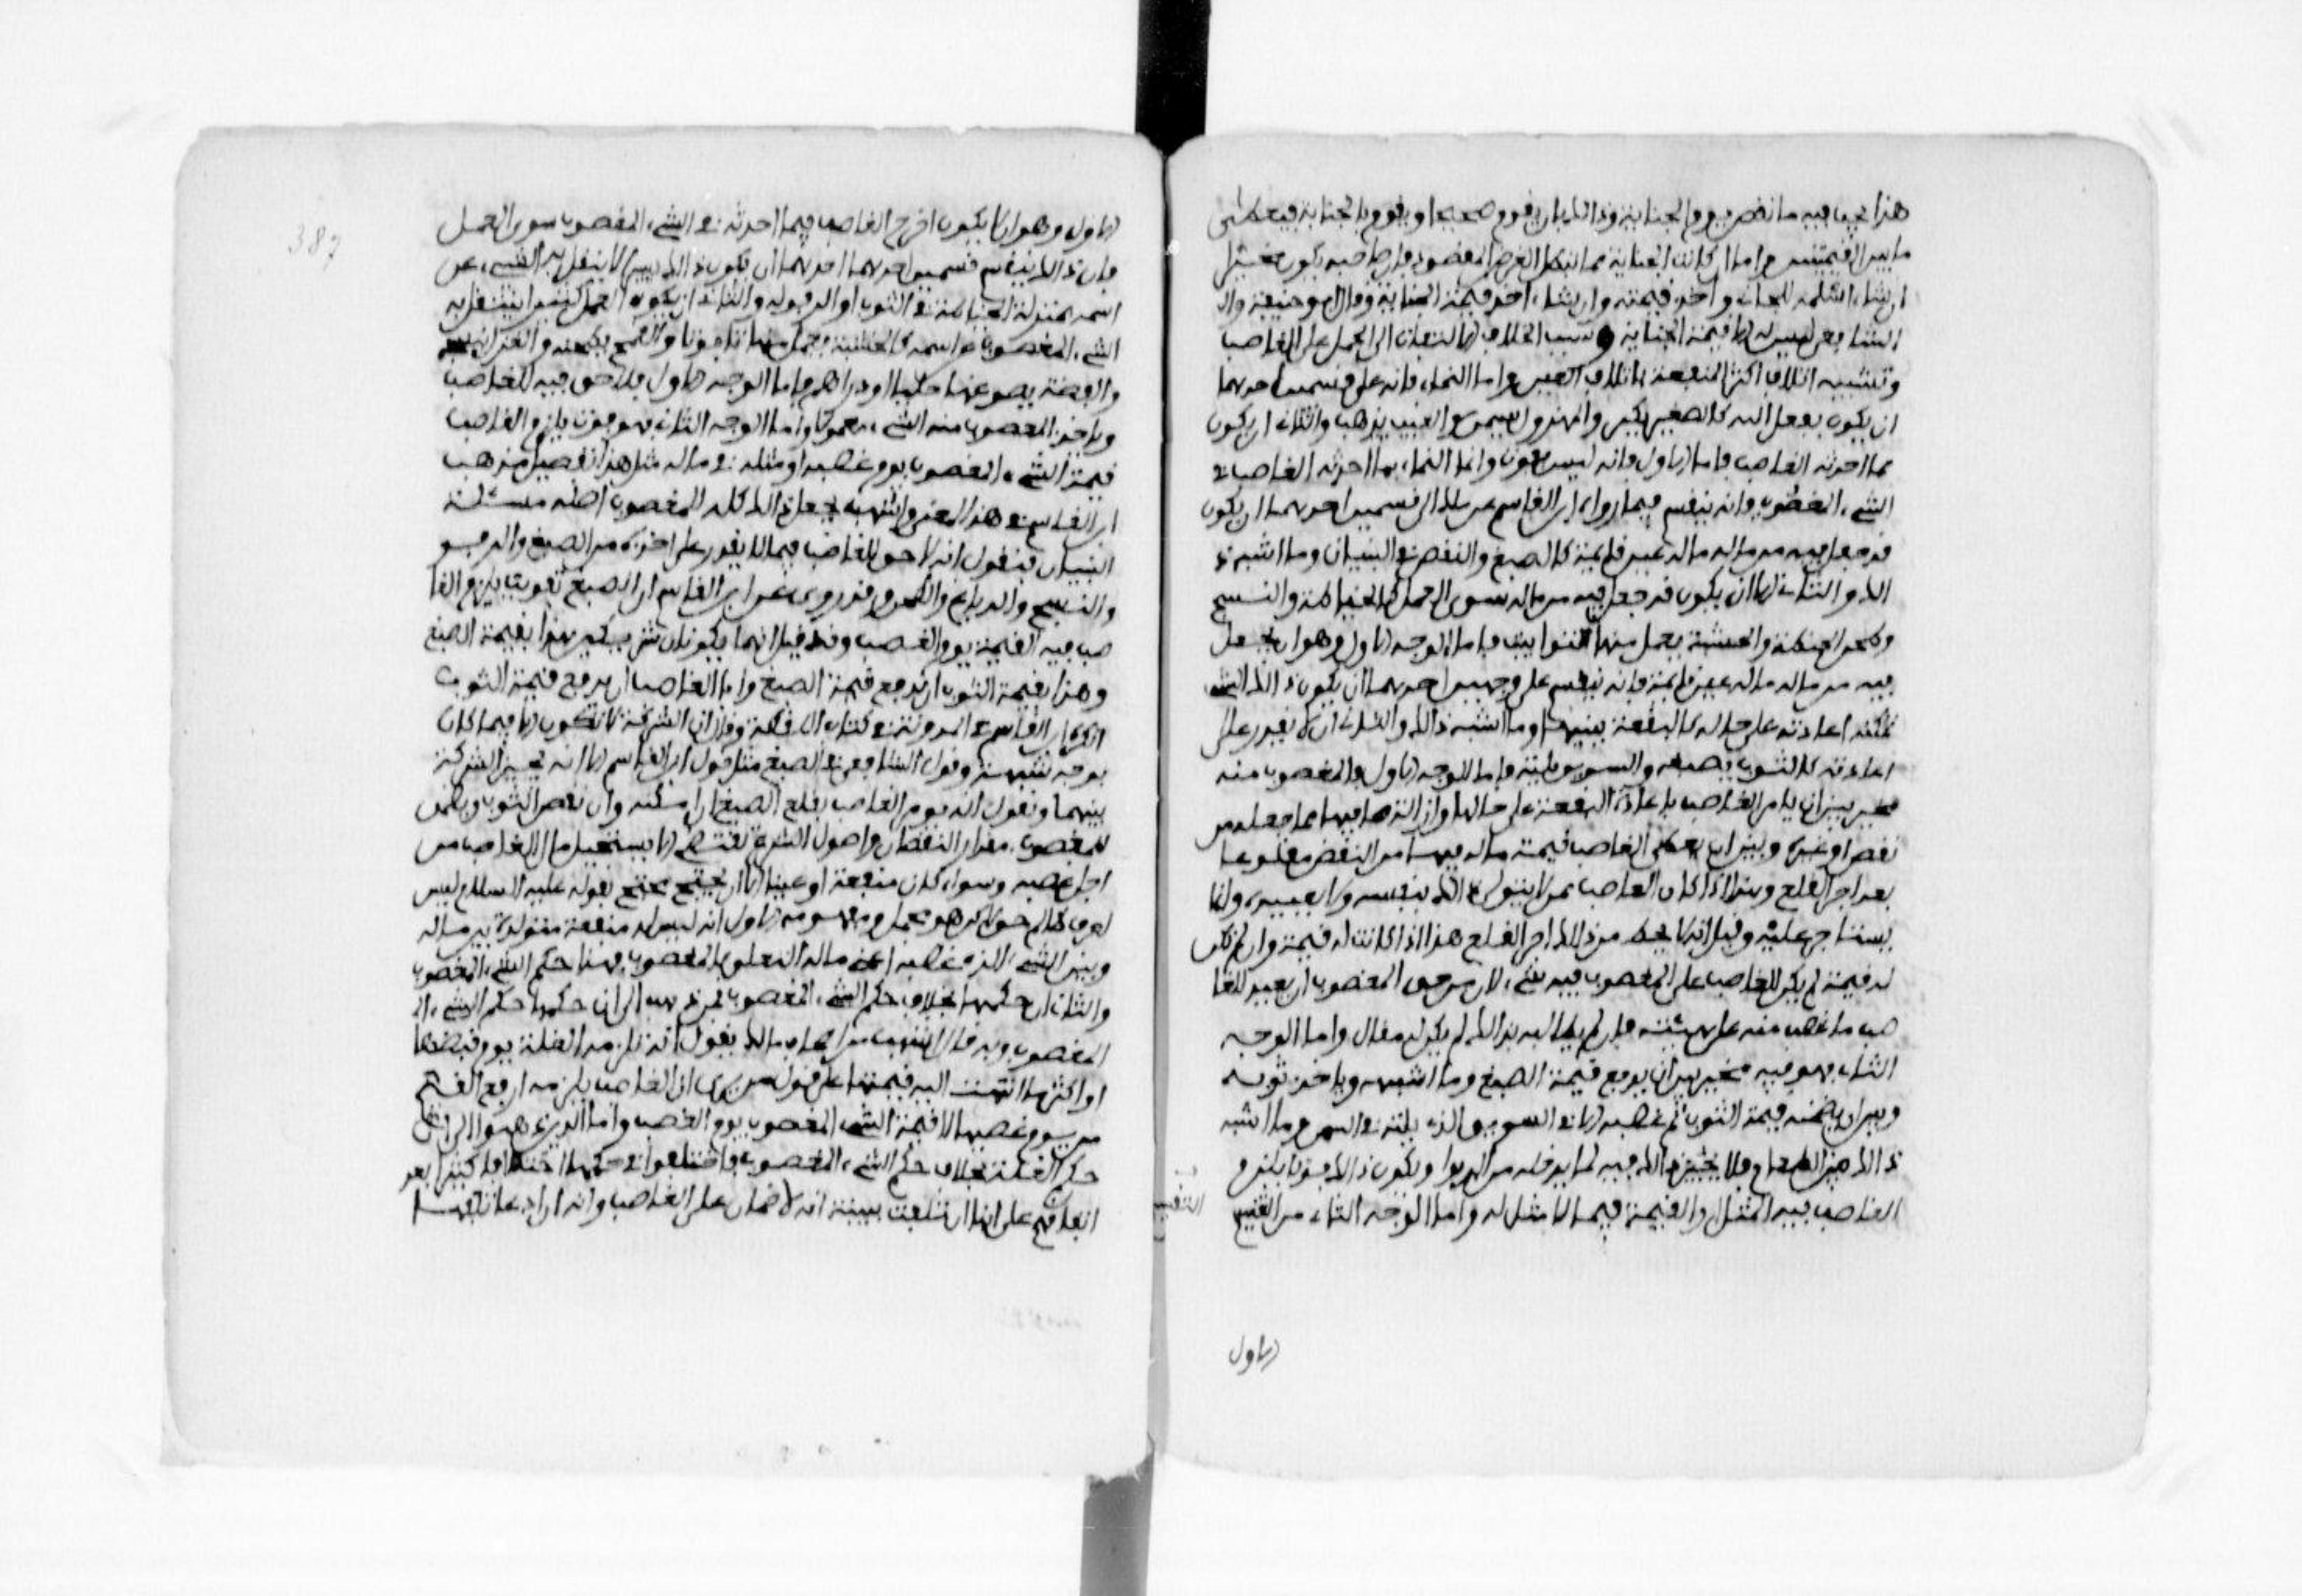 هذا يجب فيه ما نقص يوم الجناية وذالك بان يقوم صحيحا ويقوم بالجناية فيعطى
ما بين القيمتين واما ان كانت الجناية مما تبطل الغرض المقصود فان صاحبه يكون مخيرا
ان شاء اسلمه للجاني واخذ قيمته وان شاء اخذ قيمة الجناية وقال ابو حنيفة وال
الشافعي ليس له الا قيمة الجناية وسبب الخلاف الالتفات الى الحمل على الغاصب
وتشبيه اتلاف اكثر المنفعة باتلاف العين واما النماء فانه على قسمين احدهما
ان يكون بفعل الله كالصغير يكبر والمهزول يسمن والعيب يذهب والثاني ان يكون
مما احدثه الغاصب فاما الاول فانه ليس بفوت واما النماء بما احدثه الغاصب في
الشيء المغصوب فانه ينقسم فيما رواه ابن القاسم عن مالك الى قسمين احدهما ان يكون
قد جعل فيه من ماله ما له عين قائمة كالصبغ والنقص في البنيان وما اشبه ذ
الك والثاني الا ان يكون قد جعل فيه من ماله سوى العمل كالخياطة والنسج
وطحن الحنطة والخشبة يعمل منها التوابيت فاما الوجه الاول وهو ان يجعل
فيه من ماله ما له عين قائمة فانه ينقسم على وجهين احدهما ان يكون ذالك الشيء
تمكنه اعادته على حاله كالبقعة يبنيها وما اشبه ذالك والثاني ان لا يقدر على
اعادته كالثوب يصبغه والسويق يلته فاما الوجه الاول فالمغصوب منه
مخير بين ان يامر الغاصب باعادة البقعة على حالها وازالة ما فيها مما جعله من
نقص او غيره وبين ان يعطى الغاصب قيمة ما له فيها من النقض مقلوعا
بعد اجر القلع وهذا اذا كان الغاصب ممن لا يتولى ذالك بنفسه ولا بعبيده وانما
يستاجر عليه وقيل انه لا يحط من ذالك اجر القلع هذا اذا كانت له قيمة وان لم تكن
له قيمة لم يكن للغاصب على المغصوب فيه شيء لان من حق المغصوب ان يعيد للغا
صب ما غصب منه على هيئته فان لم يطالبه بذالك لم يكن له مقال واما الوجه
الثاني فهو فيه مخير بين ان يدفع قيمة الصبغ وما اشبهه وياخذ ثوبه
وبين ان يضمنه قيمة الثوب يوم غصبه الا في السويق الذي يلته في السمن وما اشبه
ذالك من الطعام فلا يخير في ذالك فيه لما يدخله من الربوا ويكون ذالك فوتا يلزم
الغاصب فيه المثل او القيمة فيما لا مثل له واما الوجه الثاني من التقسيم
الاول
الاول وهو ان لا يكون اخرج الغاصب فيما احدثه في الشيء المغصوب سوى العمل
فان ذالك ينقسم قسمين احدهما ان يكون ذالك يسيرا لا ينتقل به الشيء عن
اسمه بمنزلة الخياطة في الثوب او الرفولة والثاني ان يكون العمل كثيرا ينتقل به
الشيء المغصوب عن اسمه كالخشبة يعمل منها تابوتا والقمح يطحنه والغزل ينسجه
والفضة يصوغها حليا او دراهم فاما الوجه الاول فلا حق فيه للغاصب
وياخذ المغصوب منه الشيء معمولا واما الوجه الثاني فهو فوت يلزم الغاصب
قيمة الشيء المغصوب يوم غصبه او مثله فيما له مثل هذا تفصيل مذهب
ابن القاسم في هذا المعنى واشهب يجعل ذالك كله للمغصوب اصله مسئلة
البنيان فيقول انه لا حق للغاصب فيما لا يقدر على اخذه من الصبغ والرفو
والنسج والدباغ والطحن وقد روي عن ابن القاسم ان الصبغ تفويت يلزم الغا
صب فيه القيمة يوم الغصب وقد قيل انهما يكونان شريكين هذا بقيمة الصبغ
وهذا بقيمة الثوب ان ابى رب الثوب ان يدفع قيمة الصبغ وابى الغاصب ان يدفع قيمة الثوب
انكره ابن القاسم في المدونة في كتاب اللقطة وقال ان الشركة لا تكون الا فيما كان
بوجه شبهة وقول الشافعي في الصبغ مثل قول ابن القاسم الا انه يجيز الشركة
بينهما ويقول انه يومر الغاصب بقلع الصبغ ان امكنه وان نقص الثوب ويضمن
للمغصوب مقدار النقصان واصول الشرع تقتضي الا يستحل مال الغاصب من
اجل غصبه وسواء كان منفعة او عينا الا ان يحتج محتج بقوله عليه السلام ليس
لعرق ظالم حق لكن هو مجمل ومفهومه الاول انه ليس له منفعة متولدة بين ماله
وبين الشيء الذي غصبه اعني ماله المتعلق بالمغصوب فهذا حكم الشيء المغصوب
والثاني ان حكمها بخلاف حكم الشيء المغصوب فمن ذهب الى ان حكمها حكم الشيء ال
المغصوب وبه قال اشهب من اصحاب مالك يقول انه تلزمه الغلة يوم قبضها
او اكثر ما انتهت اليه قيمتها على قول من يرى ان الغاصب يلزمه ارفع القيم
من يوم غصبها لا قيمة الشيء المغصوب يوم الغصب واما الذين ذهبوا الى ان
حكم الغلة بخلاف حكم الشيء المغصوب فاختلفوا في حكمها اختلافا كثيرا بعد
اتفاقهم على انها ان تلفت ببينة انه لا ضمان على الغاصب وانه ان ادعا تلفها
387